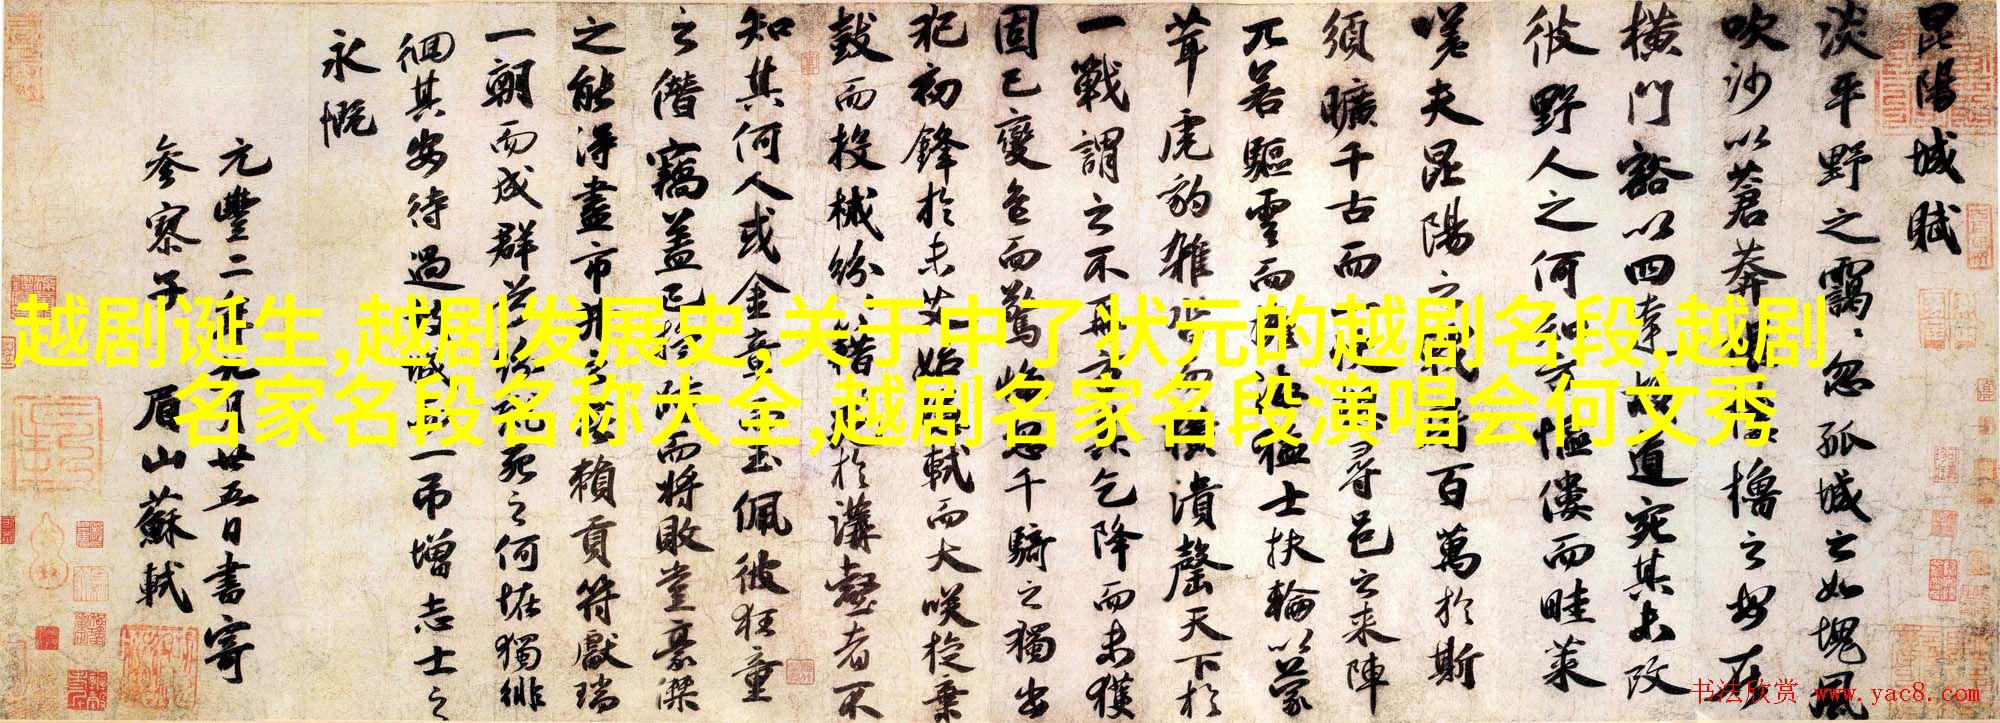 昆陽城賦
淡平野之靄靄忽孤城之如塊風
吹沙以蒼莽櫓之安在
橫門豁以四達故道宛其未改
彼野人之何知方傴僂而畦菜
嗟夫昆陽之戰屠百萬於斯
須曠千古而一快尋邑之來陣
兀若驅雲而擁猛士扶輪以蒙
茸虎豹雜沓而橫潰罄天下於
一戰謂之不再方其乞降而未獲
固已變色而驚悔忽千騎之獨出
犯初鋒於未艾始軾而大笑旋棄
鼓而投械紛藉死於溝壑者不
知其何人或金章而玉佩彼狂童
之僭竊蓋已旋踵而將敗豈豪傑
之能得盡市井之無賴貢符獻瑞
一朝而成群兮紛就死之何怪獨徘
徊其安待過故城而一弔增志士之
永慨
元豐二年九月廿五日書寄
參寥子 眉山蘇軾
越剧诞生,越剧发展史,关于中了状元的越剧名段,越剧
名家名段名称大全,越剧名家名段演唱会何文秀
书法欣赏 www.yac8.com